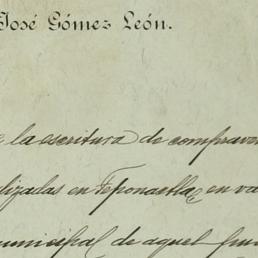 José Gómez León.
la escritura de comprav
lizadas en Teponaxtla, en va
municipal de aquel